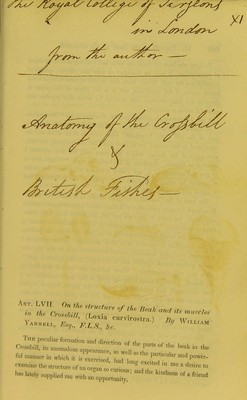 The Royal College of Surgeons
XI
in London
from the author —
Anatomy of the Crossbill
&
British Fishes —
ART. LVII. On the structure of the Beak and its muscles
in the Crossbill, (Loxia curvirostra.) By WILLIAM
YARRELL, Esq., F.L.S., &c.
THE peculiar formation and direction of the parts of the beak in the
Crossbill, its anomalous appearance, as well as the particular and power-
ful manner in which it is exercised, had long excited in me a desire to
examine the structure of an organ so curious; and the kindness of a friend
has lately supplied me with an opportunity.